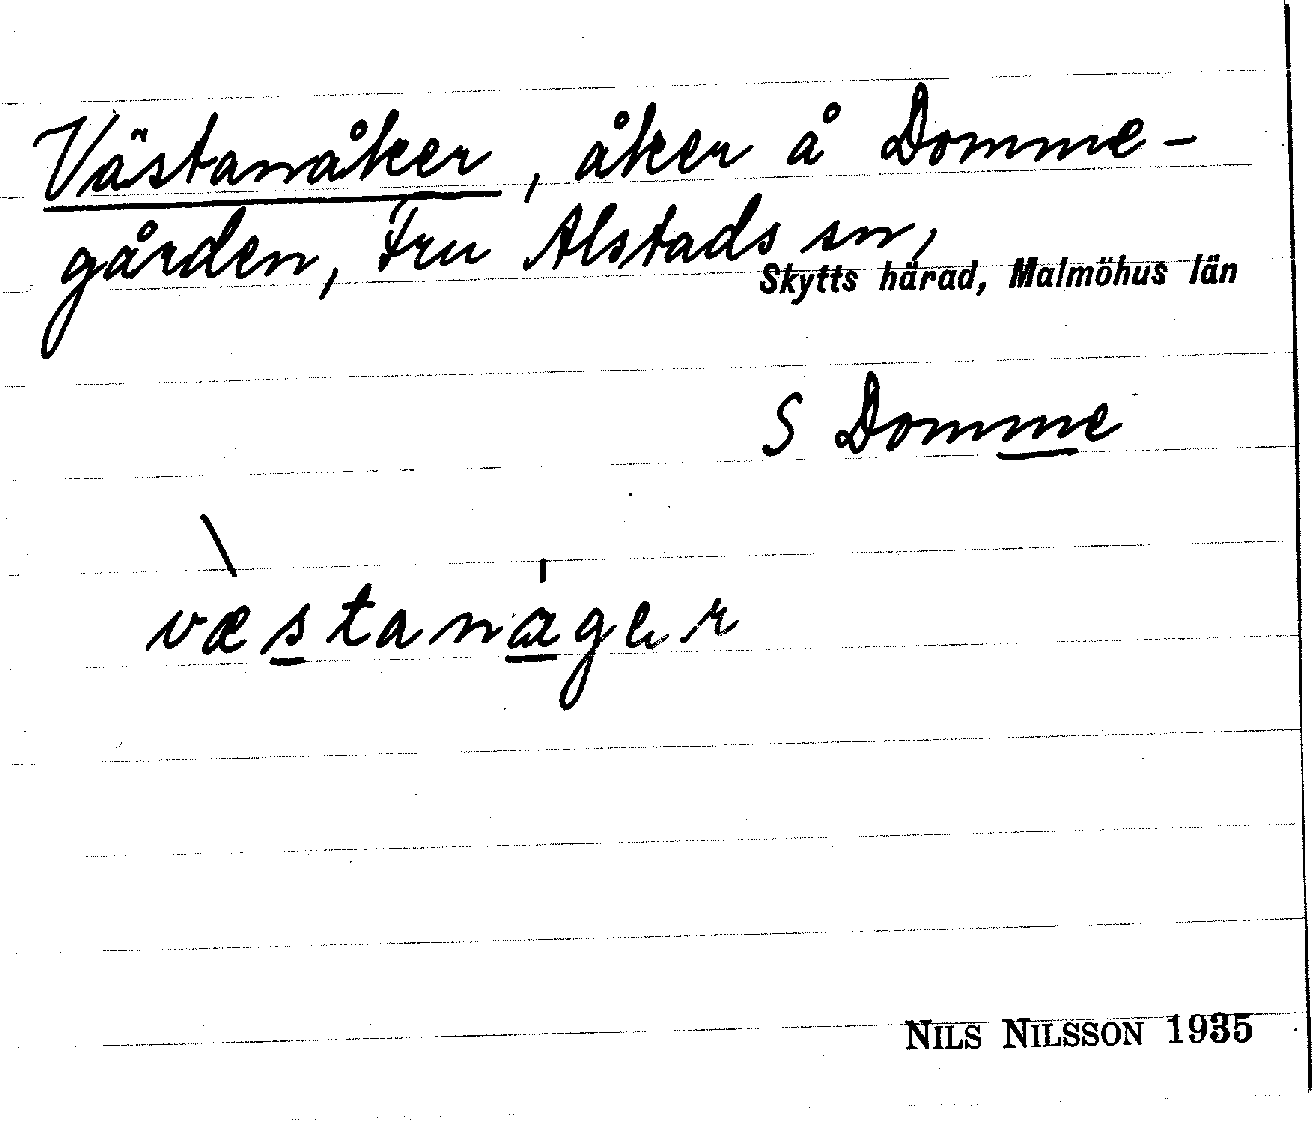 Västanåker, åker å Domme-
gården, Fru Alstads sn,
Skytts härad, Malmöhus län
S Domme
væstanager
NILS NILSSON 1935